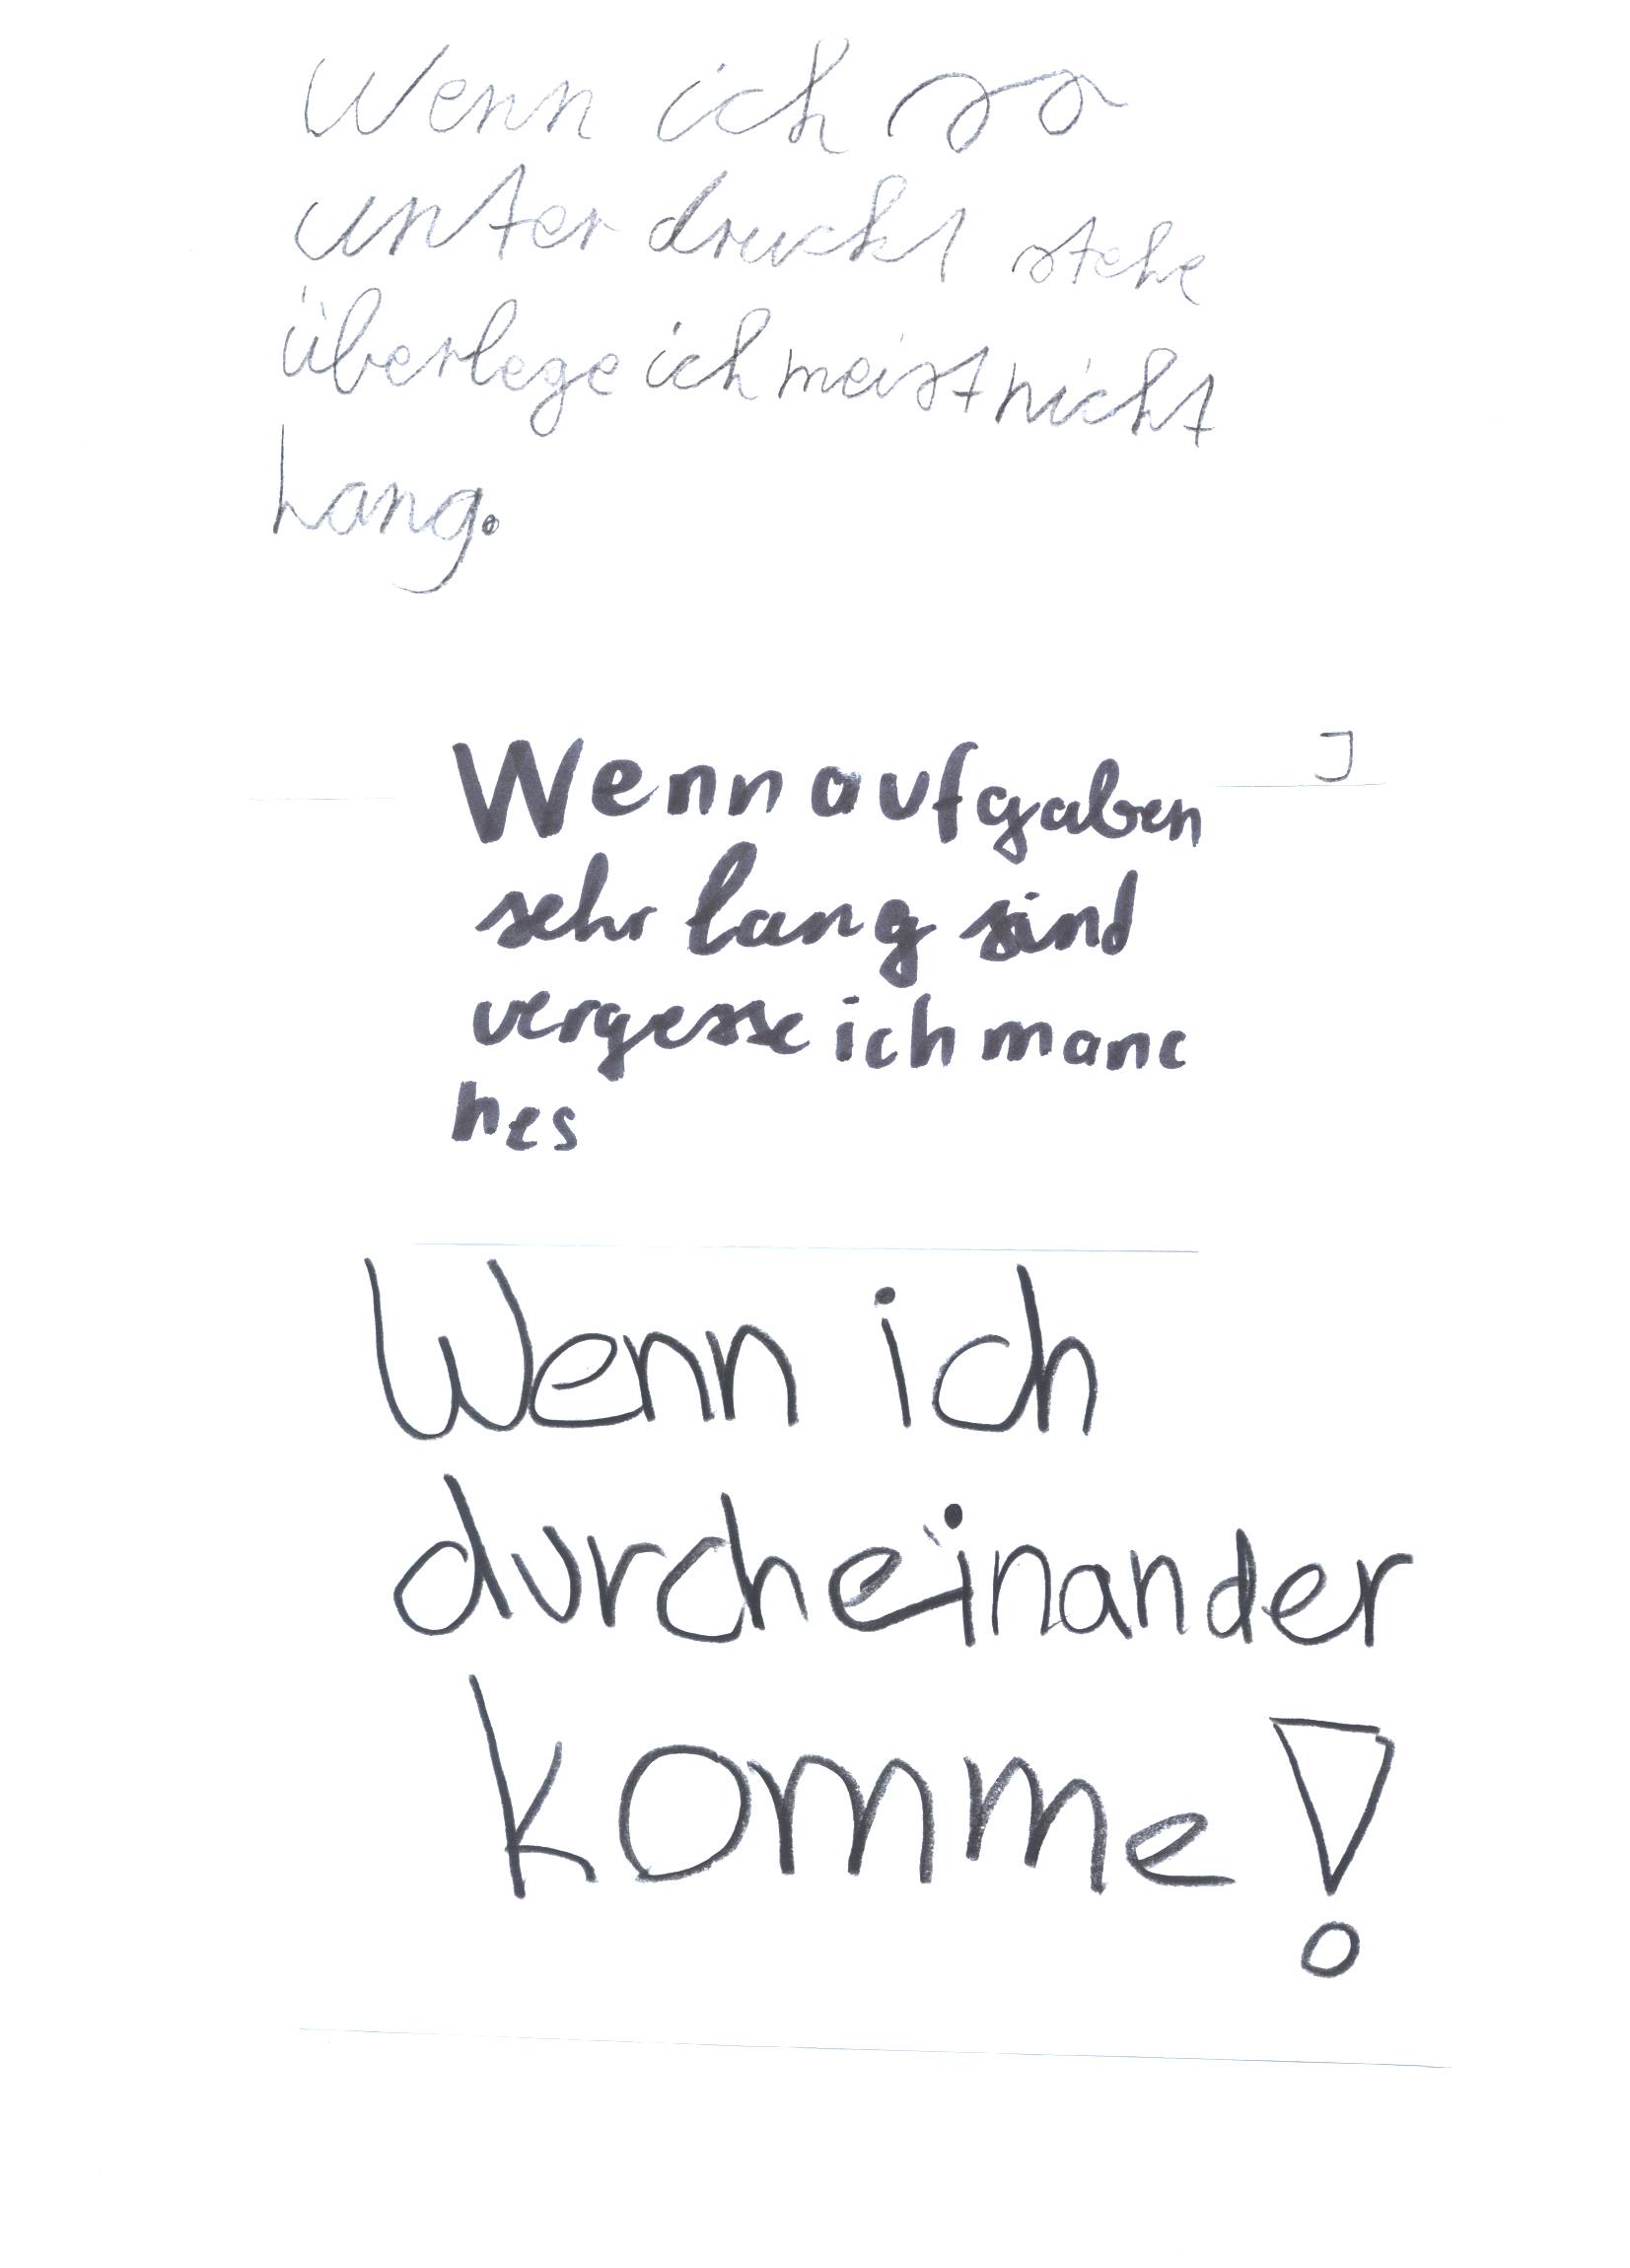 Wenn ich so
unter druckt stehe
überlege ich meist nicht
Lang.
J
Wenn aufgaben
sehr lang sind
vergesse ich manc
hes
Wenn ich
durcheinander
komme!